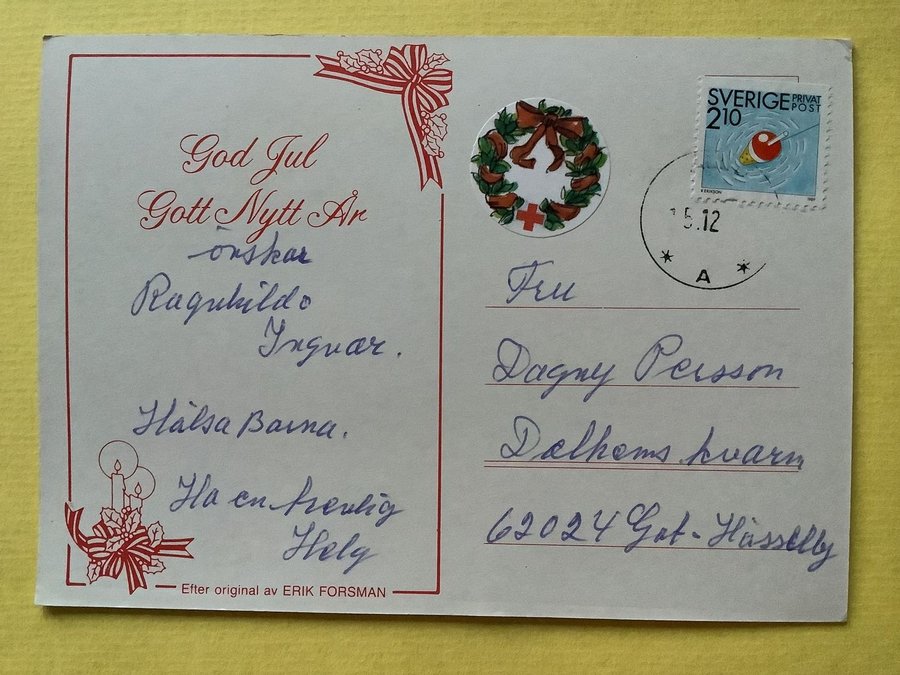 God Jul
Gott Nytt År
önskar
Ragnhild o
Ingvar.
Hälsa Barna.
Ha en trevlig
Helg
Efter original av ERIK FORSMAN
SVERIGE PRIVAT
POST
2.10
15.12
* A *
Fru
Dagny Persson
Dalhems kvarn
62024 Got-Hässelby